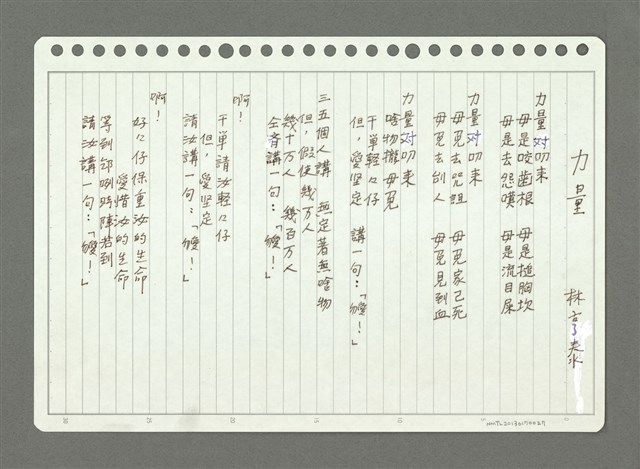 力量
林亨泰
力量对叨來
毋是咬齒根　毋是搥胸坎
毋是去怨嘆　毋是流目屎
力量对叨來
毋免去咒詛　毋免家己死
毋免去刣人　毋免見到血
力量对叨來
啥物攏毋免
干單輕々仔
但，愛堅定　講一句：「𫝛！」
三五個人講　無定著無啥物
但，假使幾万人
幾十万人　幾百万人
仝齊講一句：「𫝛！」
啊！
干單請汝輕々仔
但，愛堅定
請汝講一句：「𫝛！」
啊！
好々仔保重汝的生命
愛惜汝的生命
等到咧時陣若到
請汝講一句：「𫝛！」